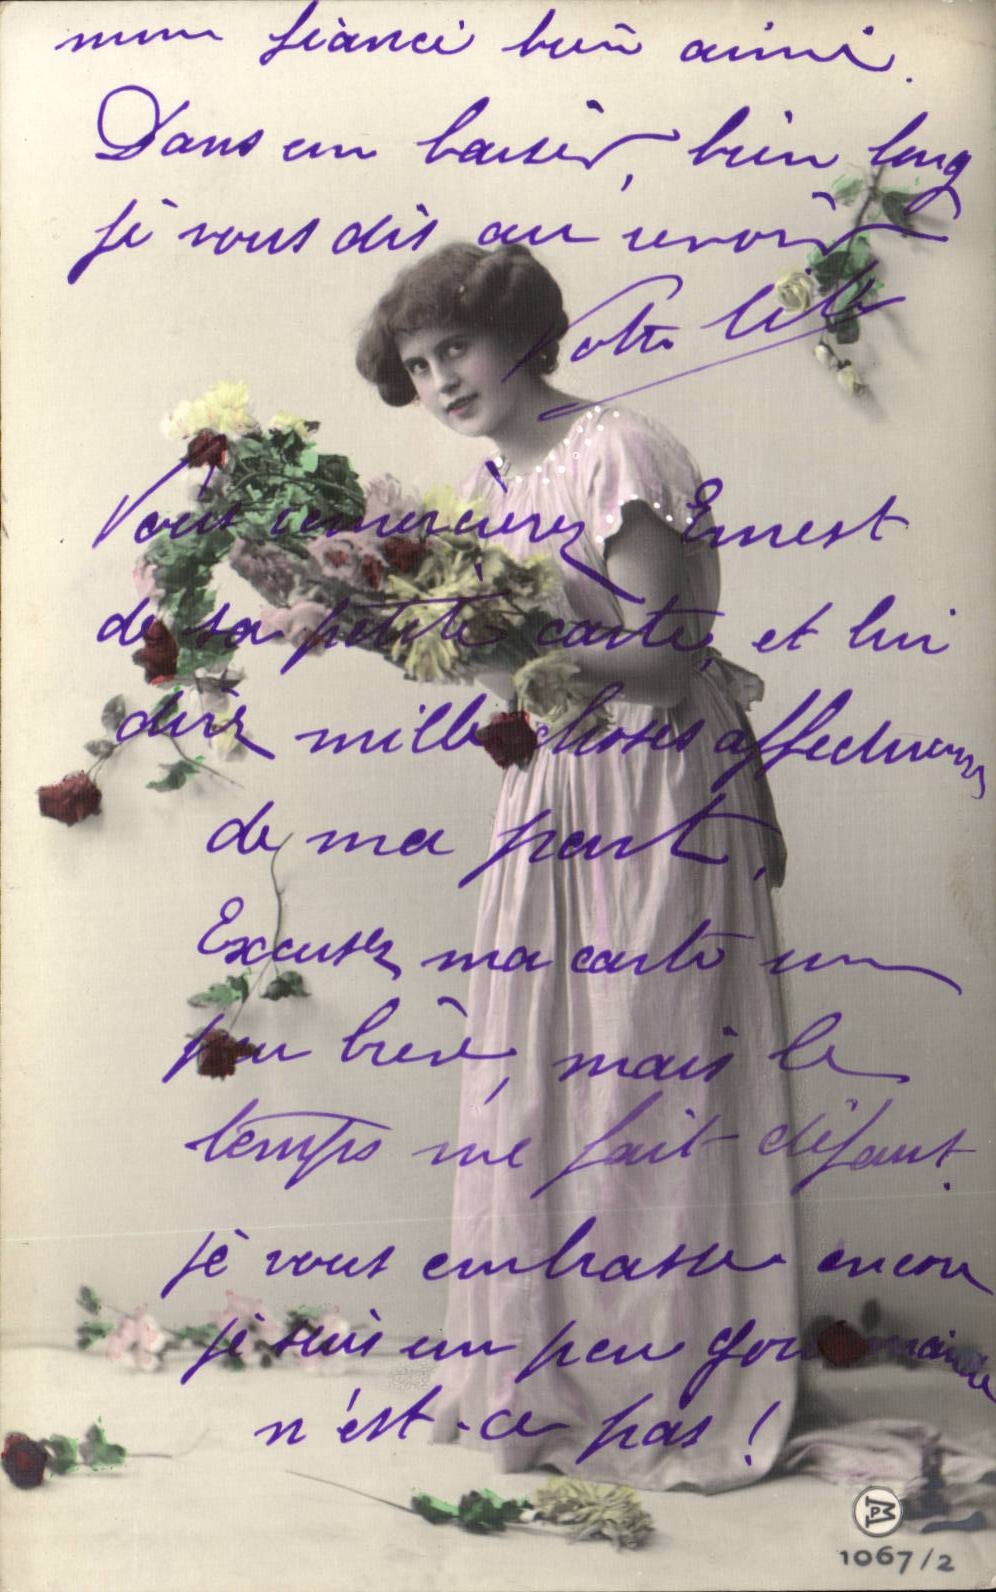 mon fiancé bien aimé.
Dans un baiser, bien long
je vous dis au revoir
Votre Lili
Vous remercierez Ernest
de sa petite carte, et lui
direz mille choses affectueuses
de ma part.
Excusez ma carte un
peu brève, mais le
temps me fait défaut.
je vous embrasse encore
je suis un peu gourmande
n'est-ce pas !
1067/2